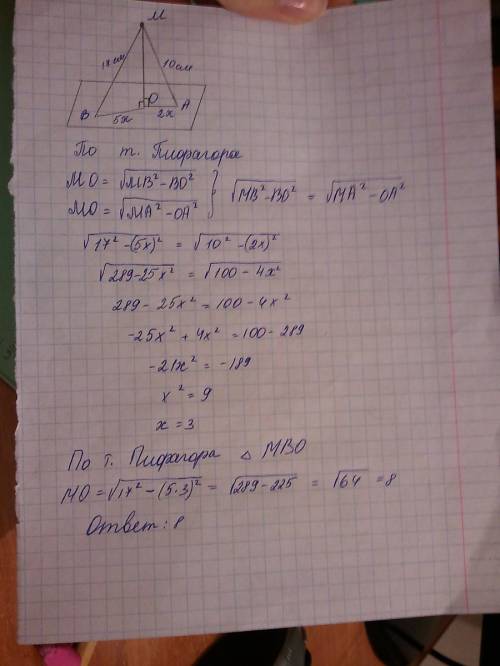 M
17 см 10 см
B O A
5x 2x
По т. Пифагора
MO = √(MB² - BO²)
MO = √(MA² - OA²) } √(MB² - BO²) = √(MA² - OA²)
√(17² - (5x)²) = √(10² - (2x)²)
√(289 - 25x²) = √(100 - 4x²)
289 - 25x² = 100 - 4x²
-25x² + 4x² = 100 - 289
-21x² = -189
x² = 9
x = 3
По т. Пифагора △ MBO
MO = √(17² - (5·3)²) = √(289 - 225) = √64 = 8
Ответ: 8